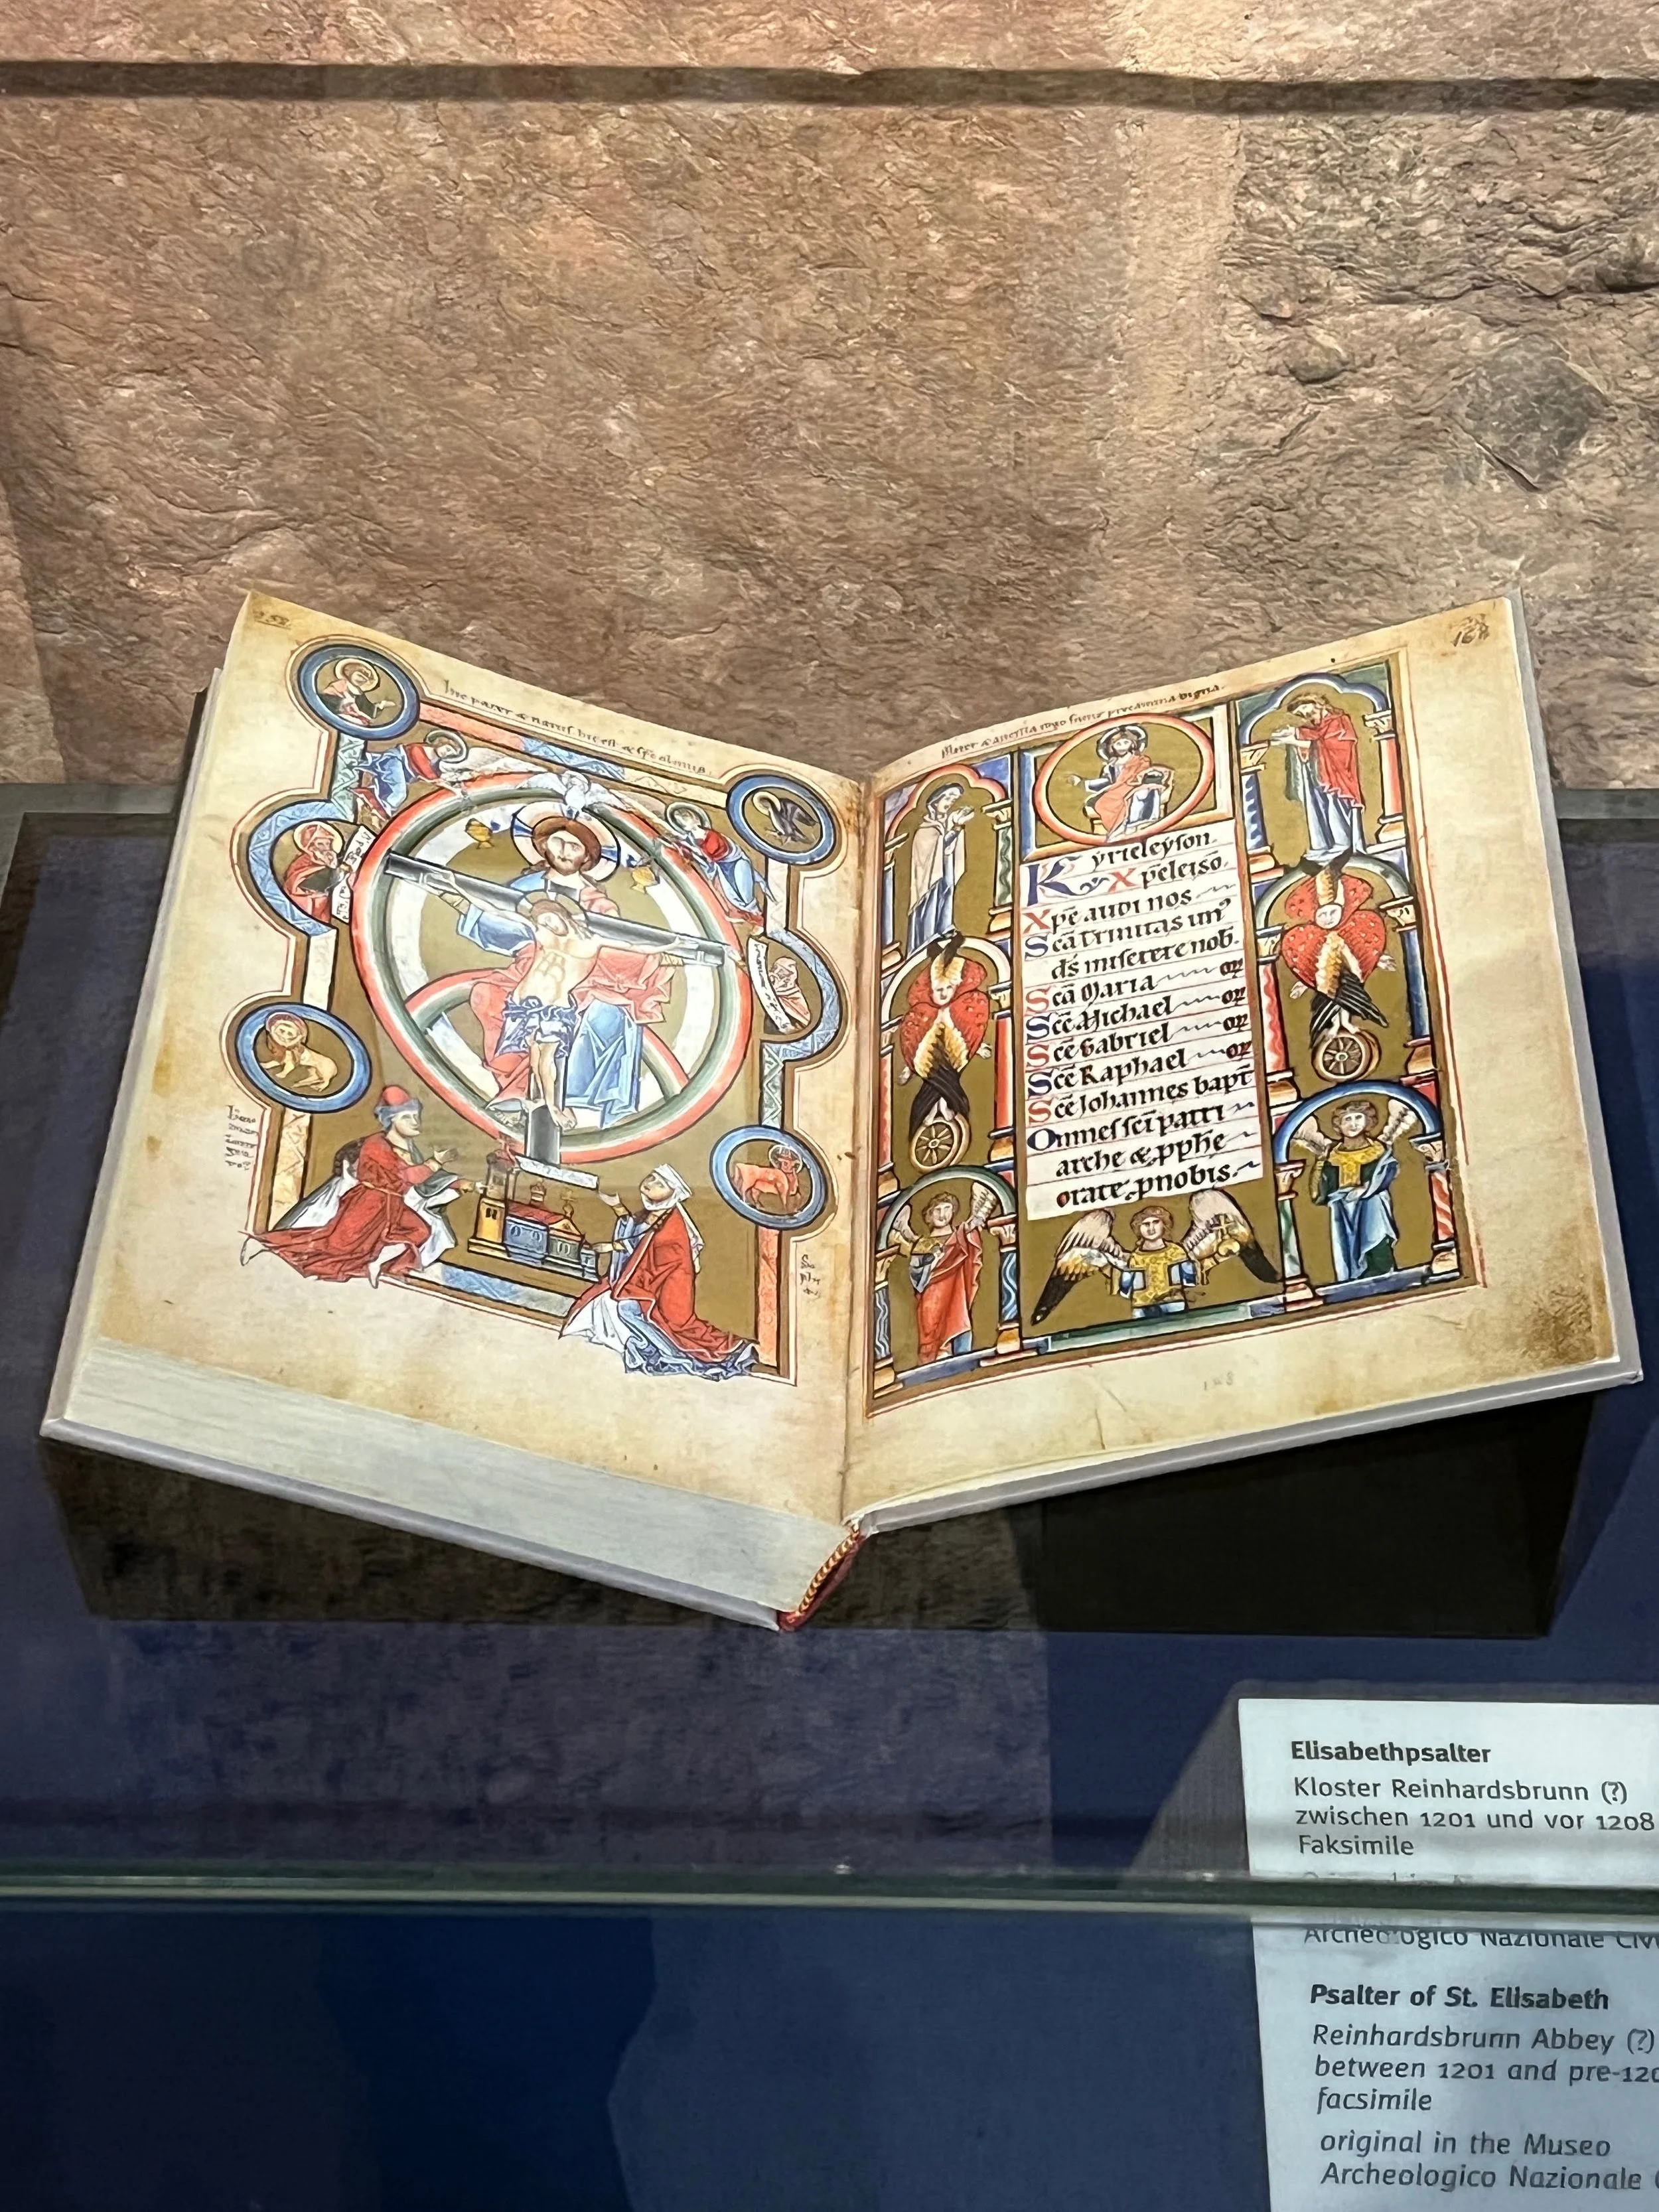 168
hic est &
Mater
precamina digna.
Kyrieleyson.
Xpeleiso.
Xp̄e audi nos
Sc̄a trinitas un᾽
ds̄ miserere nob̄.
Sc̄a Maria or̄
Sc̄e Michael or̄
Sc̄e Gabriel or̄
Sc̄e Raphael or̄
Sc̄e Johannes bapt̄
Omnes sc̄i patri
arche & p̱ph̄e
orate ꝓnobis.
Elisabethpsalter
Kloster Reinhardsbrunn (?)
zwischen 1201 und vor 1208
Faksimile
Archeologico Nazionale
Psalter of St. Elisabeth
Reinhardsbrunn Abbey (?)
between 1201 and pre-120
facsimile
original in the Museo
Archeologico Nazionale